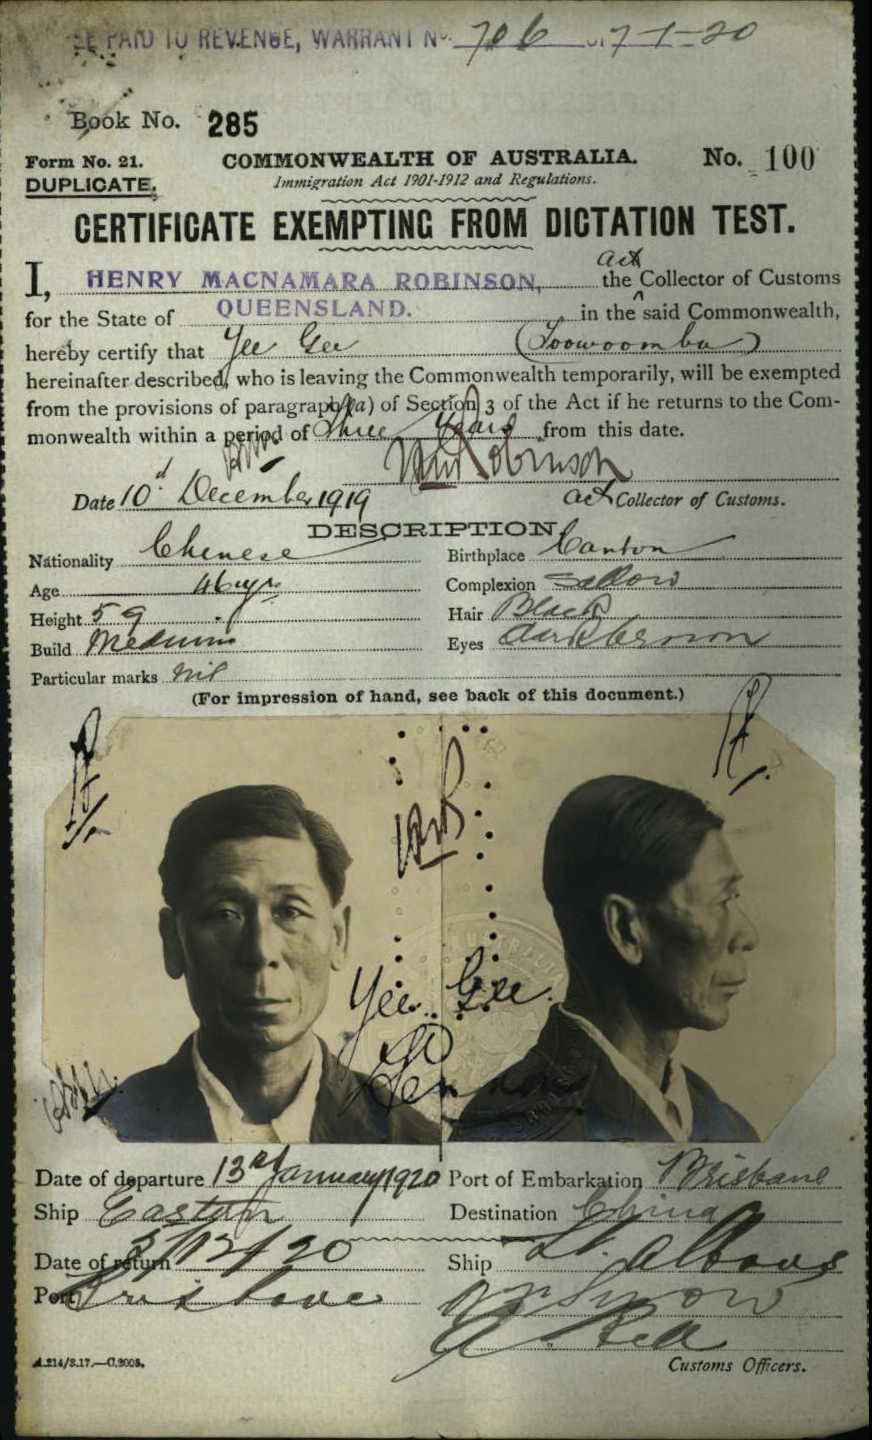 PAID TO REVENUE, WARRANT No. 706 7-1-20
Book No. 285
Form No. 21. COMMONWEALTH OF AUSTRALIA. No. 100
DUPLICATE. Immigration Act 1901-1912 and Regulations.
CERTIFICATE EXEMPTING FROM DICTATION TEST.
act
I, HENRY MACNAMARA ROBINSON, the Collector of Customs
for the State of QUEENSLAND. in the said Commonwealth,
hereby certify that Yee Gee (Toowoomba)
hereinafter described, who is leaving the Commonwealth temporarily, will be exempted
from the provisions of paragraph (a) of Section 3 of the Act if he returns to the Com-
monwealth within a period of Three Years from this date.
Robinson
Date 10th December 1919 act Collector of Customs.
DESCRIPTION
Nationality Chinese Birthplace Canton
Age 46 yrs Complexion Sallow
Height 5 9 Hair Black
Build Medium Eyes dark brown
Particular marks Nil
(For impression of hand, see back of this document.)
Yee Gee
Date of departure 13th January 1920 Port of Embarkation Brisbane
Ship Eastern Destination China
Date of return 3/12/20 Ship St. Albans
Port Brisbane
A.214/3.17.—C.2005. Customs Officers.